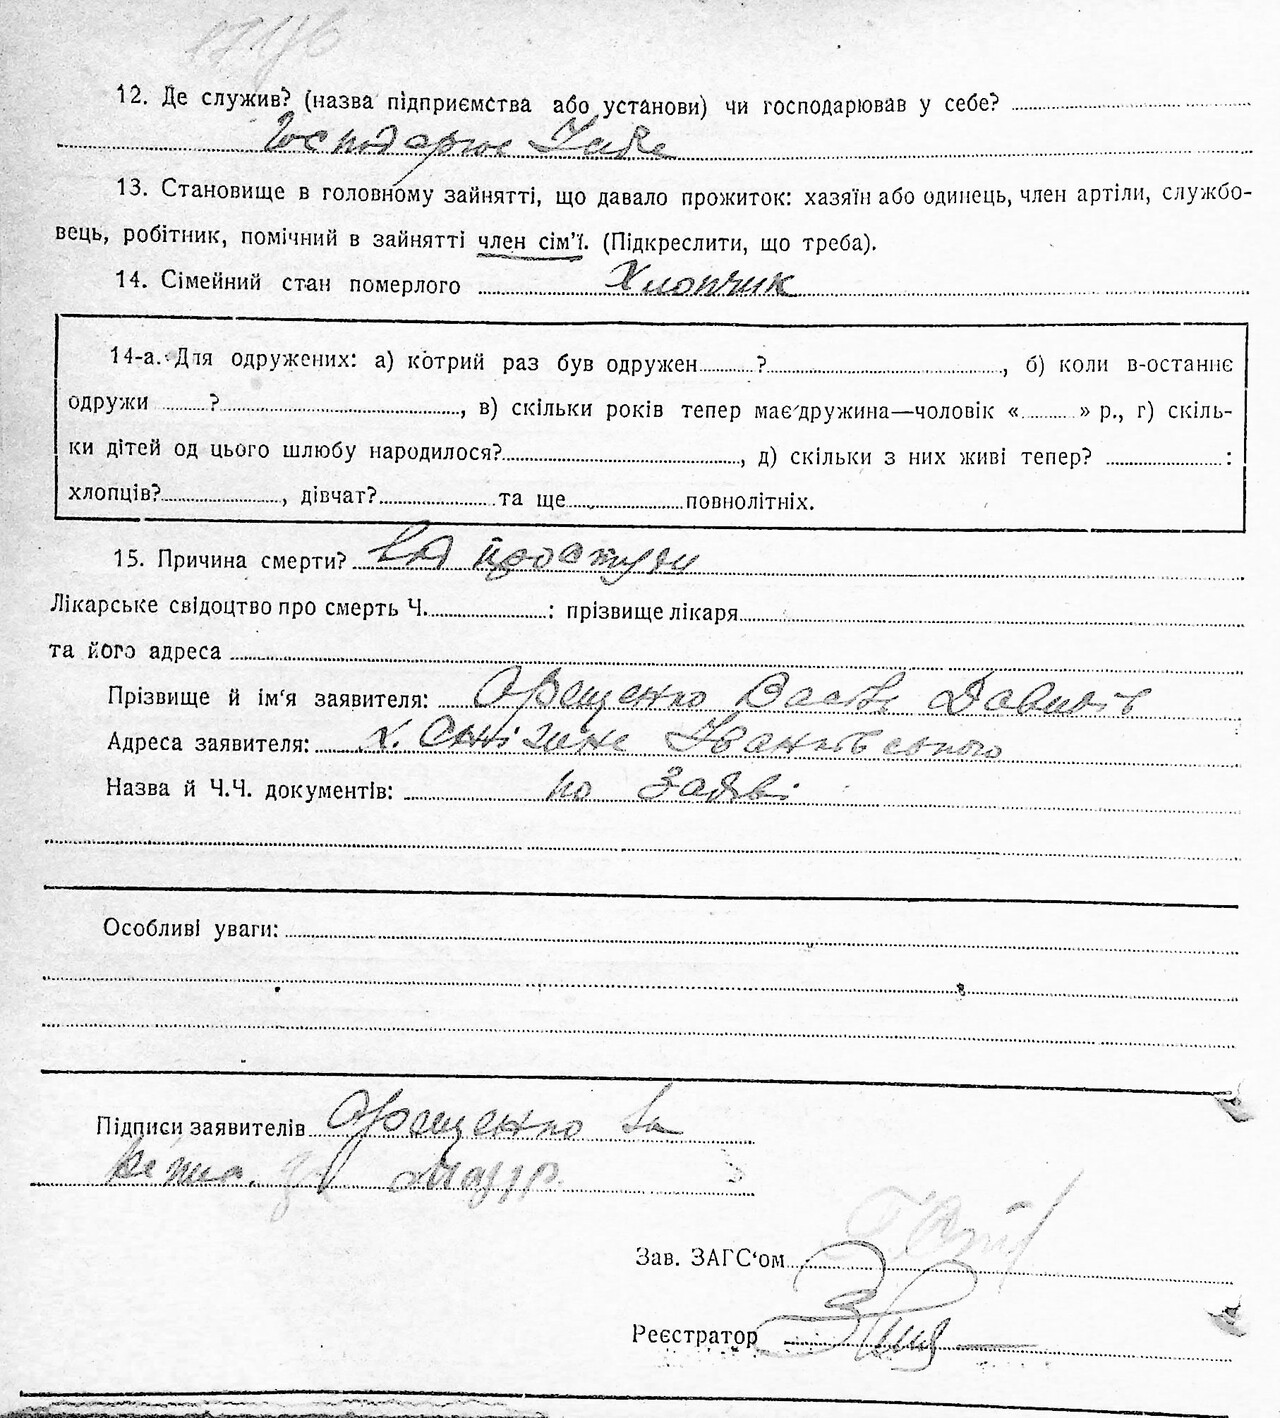 12. Де служив? (назва підприємства або установи) чи господарював у себе?
Господарює У себе
13. Становище в головному зайнятті, що давало прожиток: хазяїн або одинець, член артіли, службо-
вець, робітник, помічний в зайнятті член сім'ї. (Підкреслити, що треба).
14. Сімейний стан померлого Хлопчик
14-а. Для одружених: а) котрий раз був одружен ?, б) коли в-останнє
одружи ?, в) скільки років тепер має дружина—чоловік « » р., г) скіль-
ки дітей од цього шлюбу народилося?, д) скільки з них живі тепер? :
хлопців?, дівчат? та ще повнолітніх.
15. Причина смерти? від простуди
Лікарське свідоцтво про смерть Ч. : прізвище лікаря
та його адреса
Прізвище й ім'я заявителя: Орещенко Давидів
Адреса заявителя: х.
Назва й Ч.Ч. документів: по Заяві
Особливі уваги:
Підписи заявителів Орещенко
Зав. ЗАГС'ом
Реєстратор